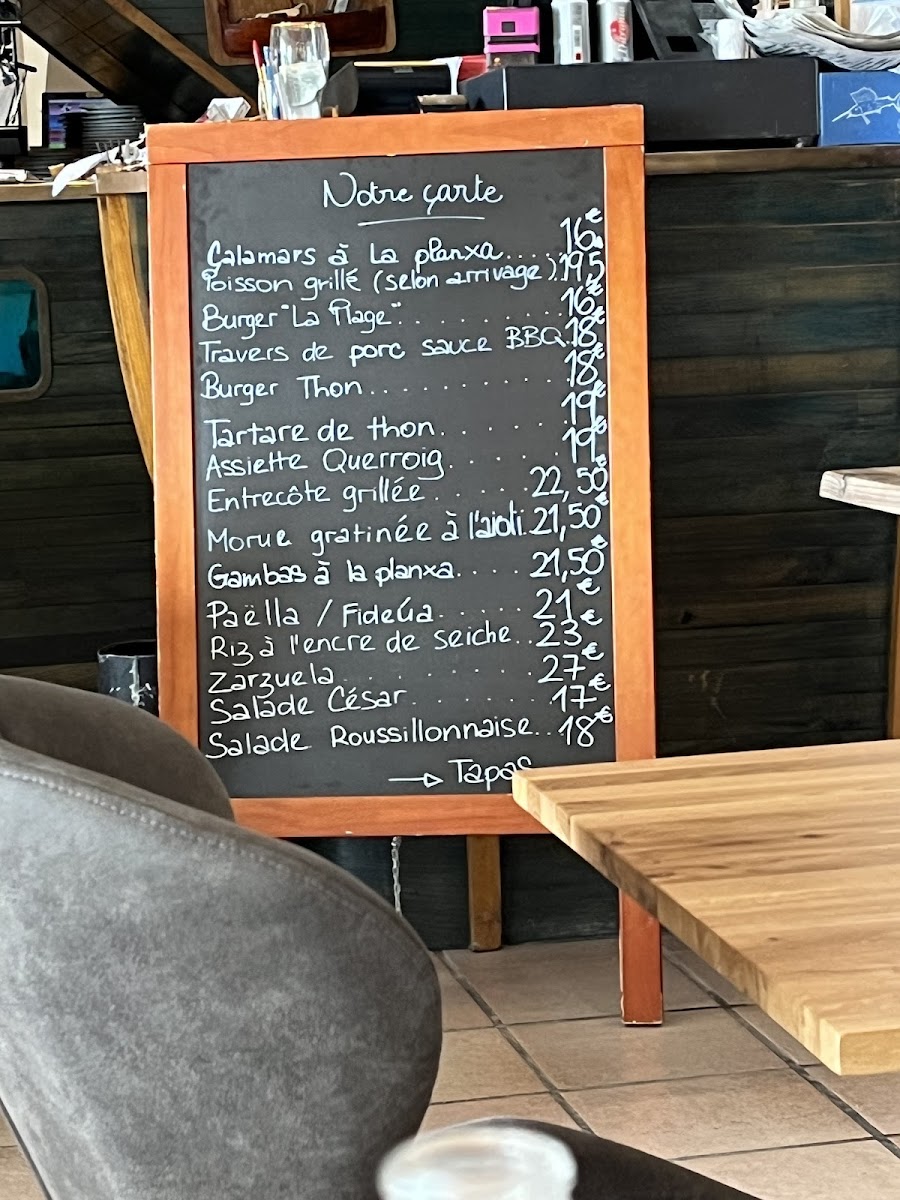 Notre carte
Calamars à La planxa.... 16€
Poisson grillé (selon arrivage). 19,5
Burger "La Plage". . . . . . . . 16€
Travers de porc sauce BBQ. 18€
Burger Thon. . . . . . . . . . . 18€
Tartare de thon. . . . . . 19€
Assiette Querroig. . . . . . 19€
Entrecôte grillée . . . . . 22,50
Morue gratinée à l'aïoli. 21,50€
Gambas à la planxa. . . . 21,50€
Paëlla / Fideúa. . . . . . 21€
Riz à l'encre de seiche... 23€
Zarzuela . . . . . . . . . 27€
Salade César. . . . . . . . 17€
Salade Roussillonnaise... 18€
→ Tapas